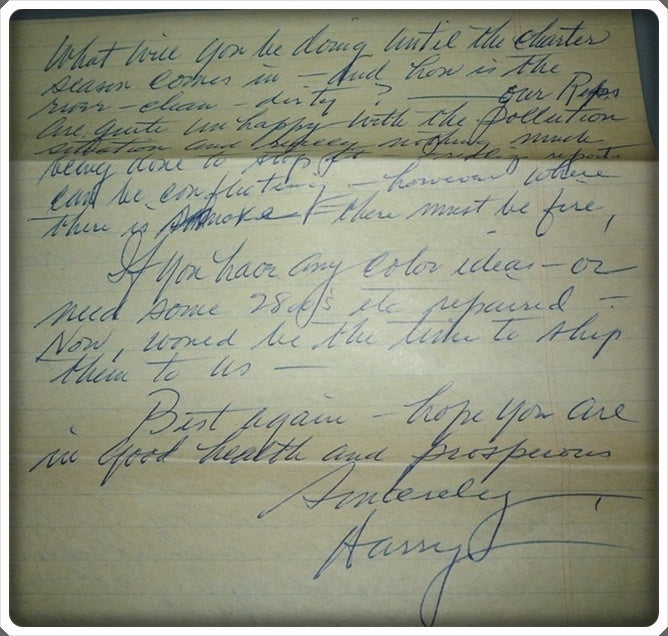 What will you be doing until the charter
season comes in - and how is the
river - clean - dirty? - our Reps
are quite unhappy with the pollution
situation and nothing much
being done to stop it - reports
can be conflicting - however where
there is smoke - there must be fire,
If you have any color ideas - or
need some 28g's etc repaired -
Now, would be the time to ship
them to us -
Best again - hope you are
in good health and prosperous
Sincerely,
Harry